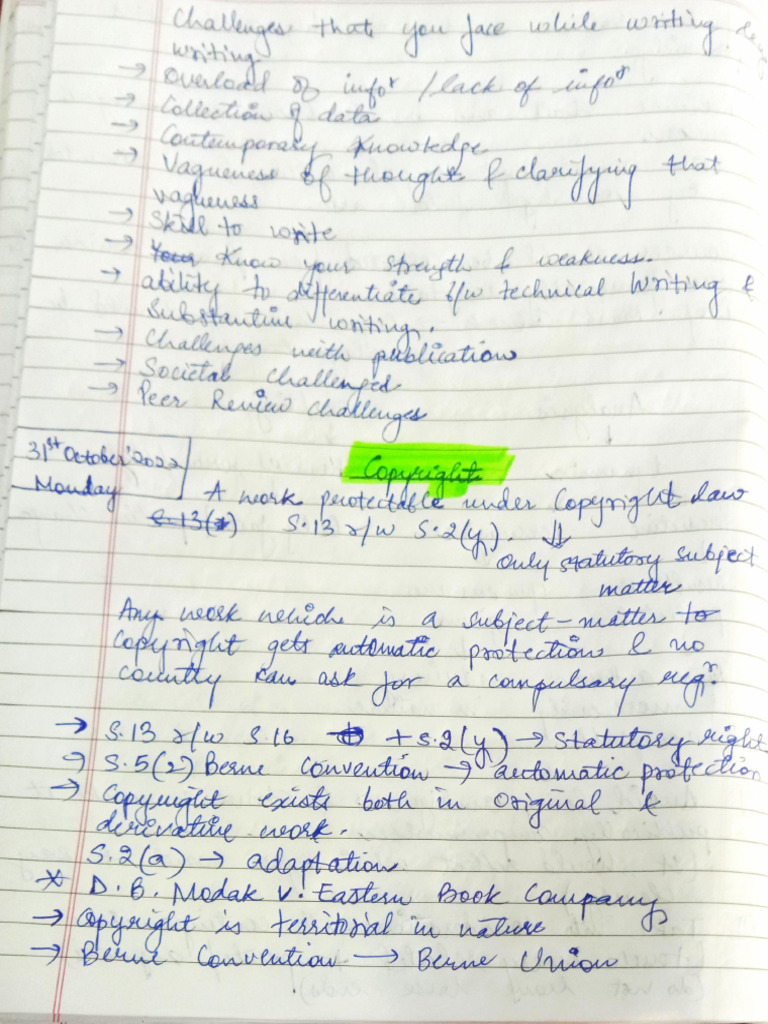 Challenges that you face while writing
writing
→ Overload of infoʳ / lack of infoʳ
→ Collection of data
→ Contemporary Knowledge
→ Vagueness of thought & clarifying that
vagueness
→ Skill to write
→ Know your strength & weakness.
→ ability to differentiate b/w technical Writing &
Substantive writing.
→ Challenges with publication
→ Societal challenges
→ Peer Review challenges
31st October'2022
Monday
Copyright
A work protectable under Copyright law
S.13 r/w S.2(y). ⇓
only statutory subject
matter
Any work which is a subject-matter to
copyright gets automatic protection & no
country can ask for a compulsary regʳ.
→ S.13 r/w S.16 + S.2(y) → statutory right
→ S.5(2) Berne Convention → automatic protection
→ Copyright exists both in original &
derivative work.
S.2(a) → adaptation
* D.B. Modak v. Eastern Book Company
→ Copyright is territorial in nature
→ Berne Convention → Berne Union